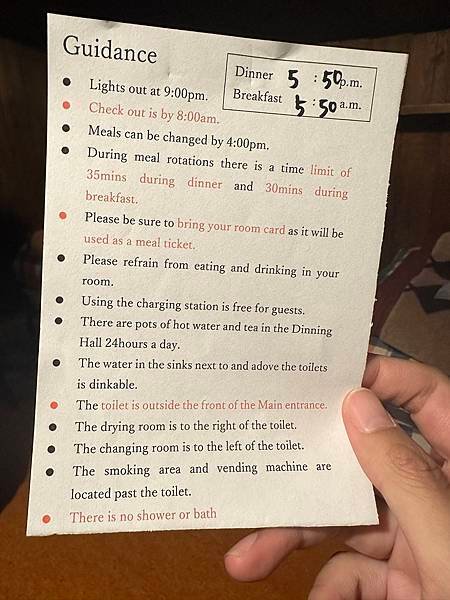 Guidance
Dinner 5 : 50 p.m.
Breakfast 5 : 50 a.m.
Lights out at 9:00pm.
Check out is by 8:00am.
Meals can be changed by 4:00pm.
During meal rotations there is a time limit of
35mins during dinner and 30mins during
breakfast.
Please be sure to bring your room card as it will be
used as a meal ticket.
Please refrain from eating and drinking in your
room.
Using the charging station is free for guests.
There are pots of hot water and tea in the Dinning
Hall 24hours a day.
The water in the sinks next to and adove the toilets
is dinkable.
The toilet is outside the front of the Main entrance.
The drying room is to the right of the toilet.
The changing room is to the left of the toilet.
The smoking area and vending machine are
located past the toilet.
There is no shower or bath